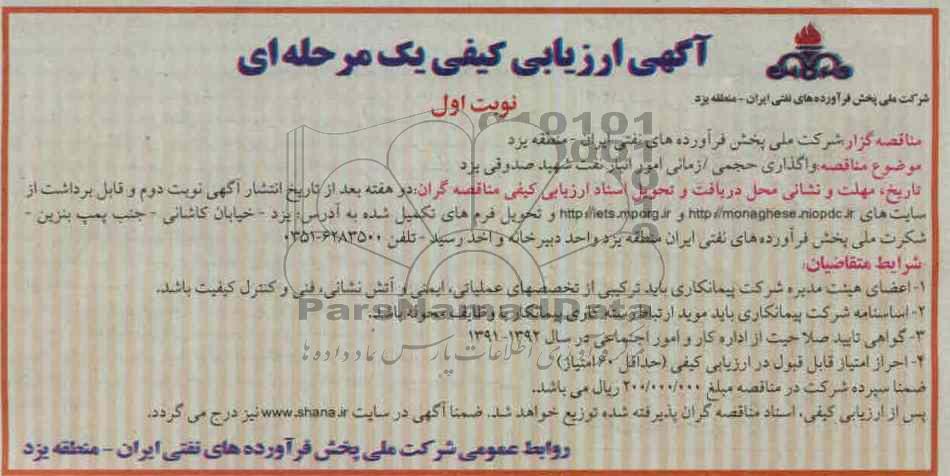 آگهی ارزیابی کیفی یک مرحله ای
شرکت ملی پخش فرآورده های نفتی ایران - منطقه یزد
نوبت اول
مناقصه گزار: شرکت ملی پخش فرآورده های نفتی ایران - منطقه یزد
موضوع مناقصه: واگذاری حجمی /زمانی امور انبار نفت شهید صدوقی یزد
تاریخ، مهلت و نشانی محل دریافت و تحویل اسناد ارزیابی کیفی مناقصه گران: دو هفته بعد از تاریخ انتشار آگهی نوبت دوم و قابل برداشت از
سایت های http://monaghese.niopdc.ir و http://iets.mporg.ir و تحویل فرم های تکمیل شده به آدرس: یزد - خیابان کاشانی - جنب پمپ بنزین -
شکرت ملی پخش فرآورده های نفتی ایران منطقه یزد واحد دبیرخانه و اخذ رسید - تلفن ۶۲۸۳۵۰۰-۰۳۵۱
شرایط متقاضیان:
۱- اعضای هیئت مدیره شرکت پیمانکاری باید ترکیبی از تخصصهای عملیاتی، ایمنی و آتش نشانی، فنی و کنترل کیفیت باشد.
۲- اساسنامه شرکت پیمانکاری باید موید ارتباط رسته کاری پیمانکار با وظایف محوله باشد.
۳- گواهی تایید صلاحیت از اداره کار و امور اجتماعی در سال ۱۳۹۲-۱۳۹۱
۴- احراز امتیاز قابل قبول در ارزیابی کیفی (حداقل ۶۰ امتیاز)
ضمنا سپرده شرکت در مناقصه مبلغ ۲۰۰/۰۰۰/۰۰۰ ریال می باشد.
پس از ارزیابی کیفی، اسناد مناقصه گران پذیرفته شده توزیع خواهد شد. ضمنا آگهی در سایت www.shana.ir نیز درج می گردد.
روابط عمومی شرکت ملی پخش فرآورده های نفتی ایران - منطقه یزد
ParsNamadData